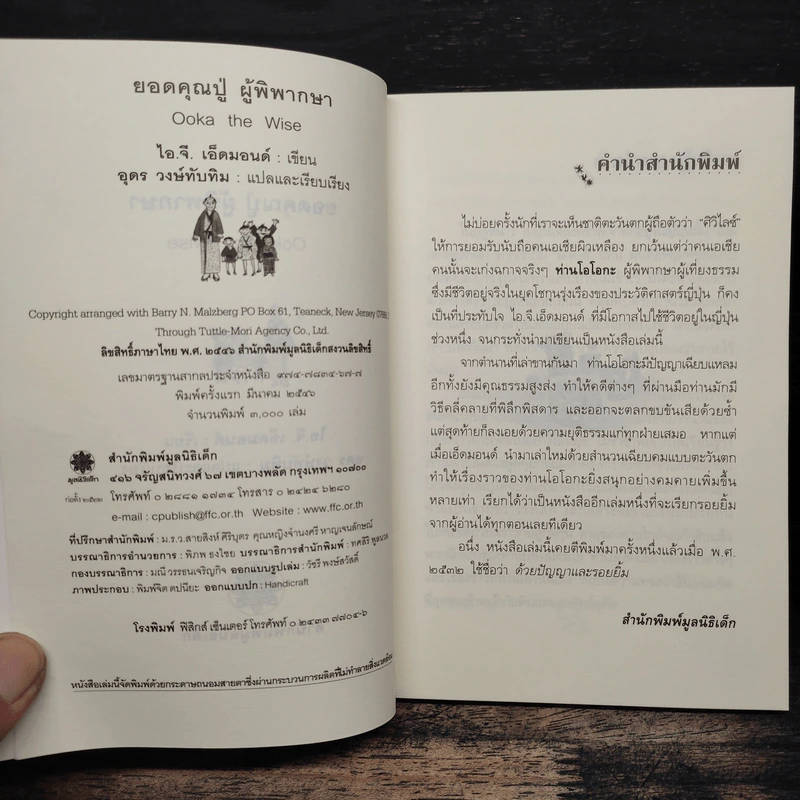 ยอดคุณปู่ ผู้พิพากษา
Ooka the Wise
ไอ.จี. เอ็ดมอนด์ : เขียน
อุดร วงษ์ทับทิม : แปลและเรียบเรียง
Copyright arranged with Barry N. Malzberg PO Box 61, Teaneck, New Jersey
Through Tuttle-Mori Agency Co., Ltd.
ลิขสิทธิ์ภาษาไทย พ.ศ. ๒๕๔๖ สำนักพิมพ์มูลนิธิเด็กสงวนลิขสิทธิ์
เลขมาตรฐานสากลประจำหนังสือ ๙๗๔-๗๘๓๔-๖๗-๗
พิมพ์ครั้งแรก มีนาคม ๒๕๔๖
จำนวนพิมพ์ ๓,๐๐๐ เล่ม
สำนักพิมพ์มูลนิธิเด็ก
๔๑๖ จรัญสนิทวงศ์ ๖๗ เขตบางพลัด กรุงเทพฯ ๑๐๗๐๐
โทรศัพท์ ๐ ๒๘๘๑ ๑๗๓๔ โทรสาร ๐ ๒๔๒๔ ๖๒๘๐
e-mail : cpublish@ffc.or.th Website : www.ffc.or.th
มูลนิธิเด็ก
ก่อตั้ง ๒๕๒๒
ที่ปรึกษาสำนักพิมพ์ : ม.ร.ว.สายสิงห์ ศิริบุตร คุณหญิงจำนงศรี หาญเจนลักษณ์
บรรณาธิการอำนวยการ : พิภพ ธงไชย บรรณาธิการสำนักพิมพ์ : ทศสิริ พูลนวล
กองบรรณาธิการ : มณี วรรธนเจริญกิจ ออกแบบรูปเล่ม : วัชรี พงษ์สวัสดิ์
ภาพประกอบ : พิมพ์จิต ตปนียะ ออกแบบปก : Handicraft
โรงพิมพ์ ฟิสิกส์ เซ็นเตอร์ โทรศัพท์ ๐ ๒๔๓๓ ๗๗๐๔-๖
หนังสือเล่มนี้จัดพิมพ์ด้วยกระดาษถนอมสายตาซึ่งผ่านกระบวนการผลิตที่ไม่ทำลายสิ่งแวดล้อม
คำนำสำนักพิมพ์
ไม่บ่อยครั้งนักที่เราจะเห็นชาติตะวันตกผู้ถือตัวว่า “ศิวิไลซ์”
ให้การยอมรับนับถือคนเอเชียผิวเหลือง ยกเว้นแต่ว่าคนเอเชีย
คนนั้นจะเก่งฉกาจจริงๆ ท่านโอโอกะ ผู้พิพากษาผู้เที่ยงธรรม
ซึ่งมีชีวิตอยู่จริงในยุคโชกุนรุ่งเรืองของประวัติศาสตร์ญี่ปุ่น ก็คง
เป็นที่ประทับใจ ไอ.จี.เอ็ดมอนด์ ที่มีโอกาสไปใช้ชีวิตอยู่ในญี่ปุ่น
ช่วงหนึ่ง จนกระทั่งนำมาเขียนเป็นหนังสือเล่มนี้
จากตำนานที่เล่าขานกันมา ท่านโอโอกะมีปัญญาเฉียบแหลม
อีกทั้งยังมีคุณธรรมสูงส่ง ทำให้คดีต่างๆ ที่ผ่านมือท่านมักมี
วิธีคลี่คลายที่พิลึกพิสดาร และออกจะตลกขบขันเสียด้วยซ้ำ
แต่สุดท้ายก็ลงเอยด้วยความยุติธรรมแก่ทุกฝ่ายเสมอ หากแต่
เมื่อเอ็ดมอนด์ นำมาเล่าใหม่ด้วยสำนวนเฉียบคมแบบตะวันตก
ทำให้เรื่องราวของท่านโอโอกะยิ่งสนุกอย่างคมคายเพิ่มขึ้น
หลายเท่า เรียกได้ว่าเป็นหนังสืออีกเล่มหนึ่งที่จะเรียกรอยยิ้ม
จากผู้อ่านได้ทุกตอนเลยทีเดียว
อนึ่ง หนังสือเล่มนี้เคยตีพิมพ์มาครั้งหนึ่งแล้วเมื่อ พ.ศ.
๒๕๓๒ ใช้ชื่อว่า ด้วยปัญญาและรอยยิ้ม
สำนักพิมพ์มูลนิธิเด็ก